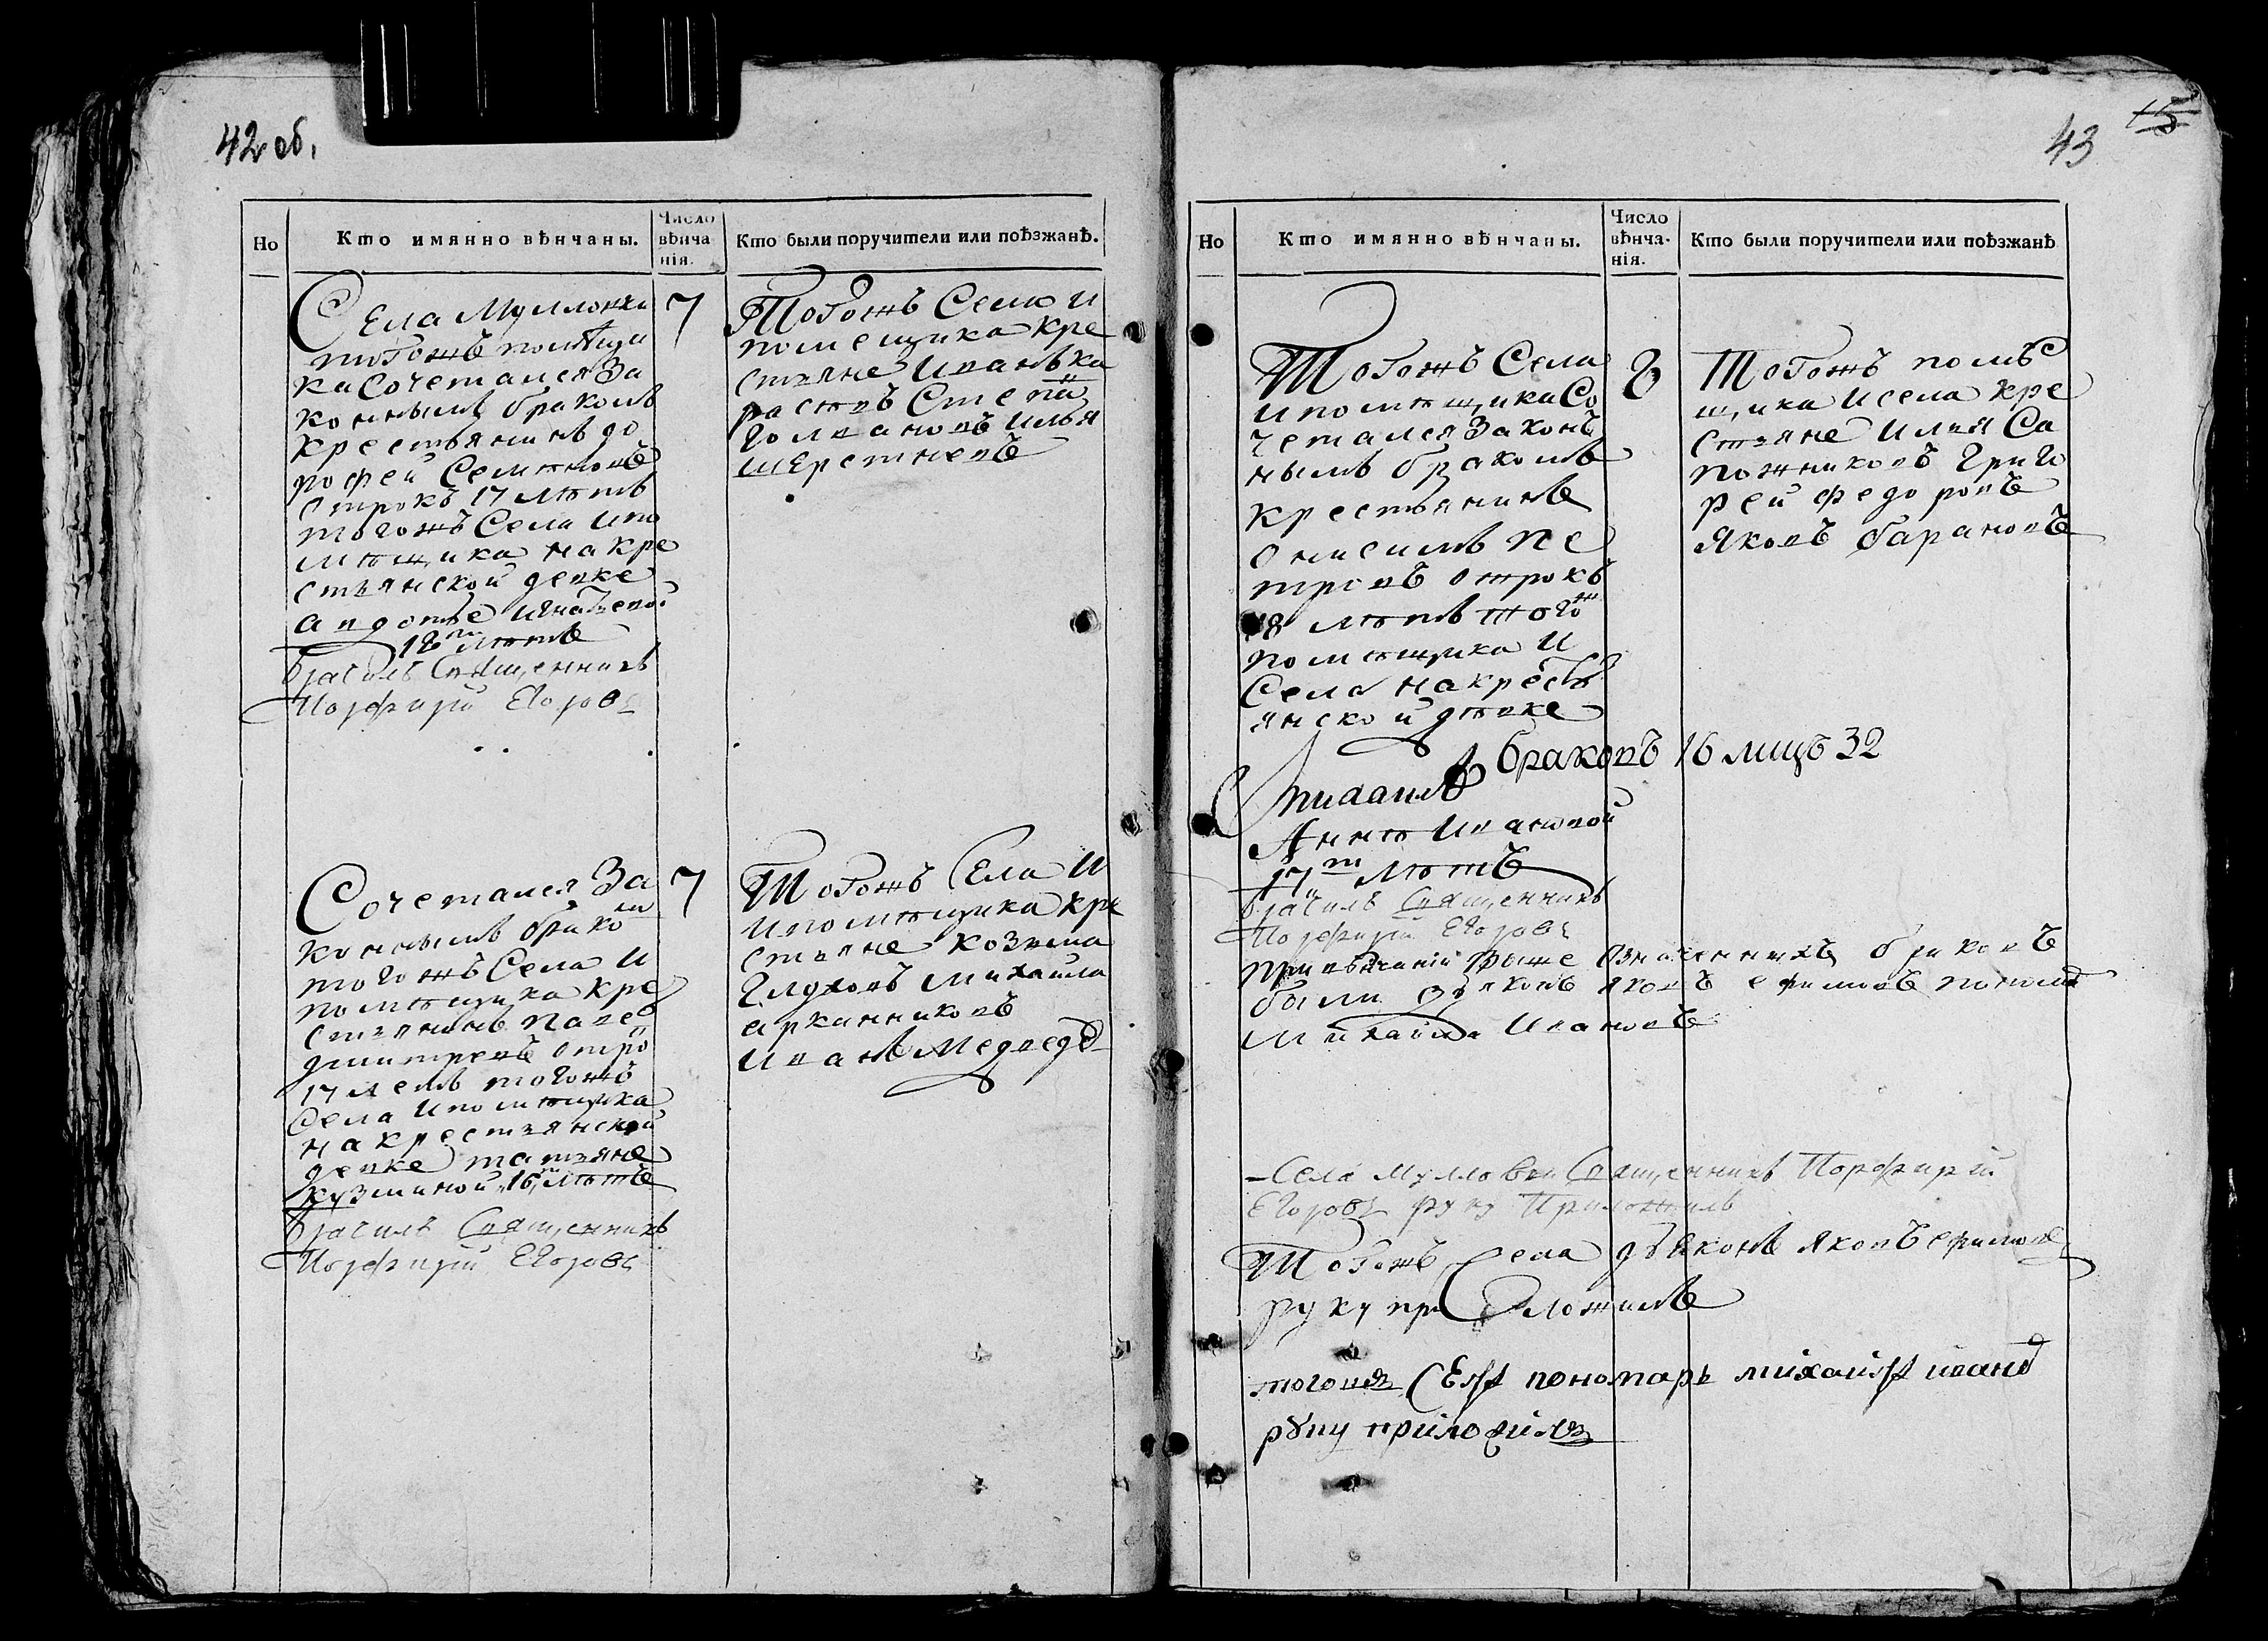 42 об.
Но
Кто имянно вѣнчаны.
Число вѣнча нія.
Кто были поручители или поѣзжанѣ.
Села Мулловки
тогожъ помѣщи
ка Сочетался За
коннымъ бракомъ
крестьянинъ до
рофей Семионовъ
отрокъ 17 лѣтъ
тогожъ Села ипо
мѣщика на кре
стьянской девке
авдотье игнатьевой
18 лѣтъ
Брачилъ Священникъ
Порфирий Егоровъ
7
Тогожъ Села и
помещика кре
стьяне Иванъ ка
растевъ Степа
голвановъ илья
шерстневъ
Сочетался За
коннымъ бракомъ
тогожъ Села и
помѣщика кре
стьянинъ павел
дмитревъ отро
17 летъ тогожъ
Села ипомѣщика
на крестьянской
девке татьяне
кузминой 16 лѣтъ
Брачилъ Священникъ
Порфирий Егоровъ
7
Тогожъ Села и
ипомѣщика кре
стьяне козьма
глуховъ михайла
арканниковъ
иванъ медведв
43
115
Но
Кто имянно вѣнчаны.
Число вѣнча- нія.
Кто были поручители или поѣзжанѣ
Тогожъ Села
ипомѣщика Со
четался Законъ
нымъ бракомъ
крестьянинъ
онисимъ пе
тровъ отрокъ
18 лѣтъ того ж
помѣщика и
Села на крестъ
янской дѣвке
8
Тогожъ помѣ
щика исела кре
стьяне илья Са
пожниковъ григо
рей федоровъ
Яковъ барановъ
браковъ 16 лицъ 32
Аннѣ Ивановой
17 лѣтъ
Брачилъ Священникъ
Порфирий Егоровъ
при вѣнчаніи выше означенныхъ браковъ
были дьяконъ яковъ ефимовъ понома
михайла Ивановъ
Села Мулловки Священникъ Порфирий
Егоровъ руку Приложилъ
Тогожъ Села дьяконъ яковъ ефимовъ
руку приложилъ
тогожъ Села пономарь михаила иванов
руку приложилъ